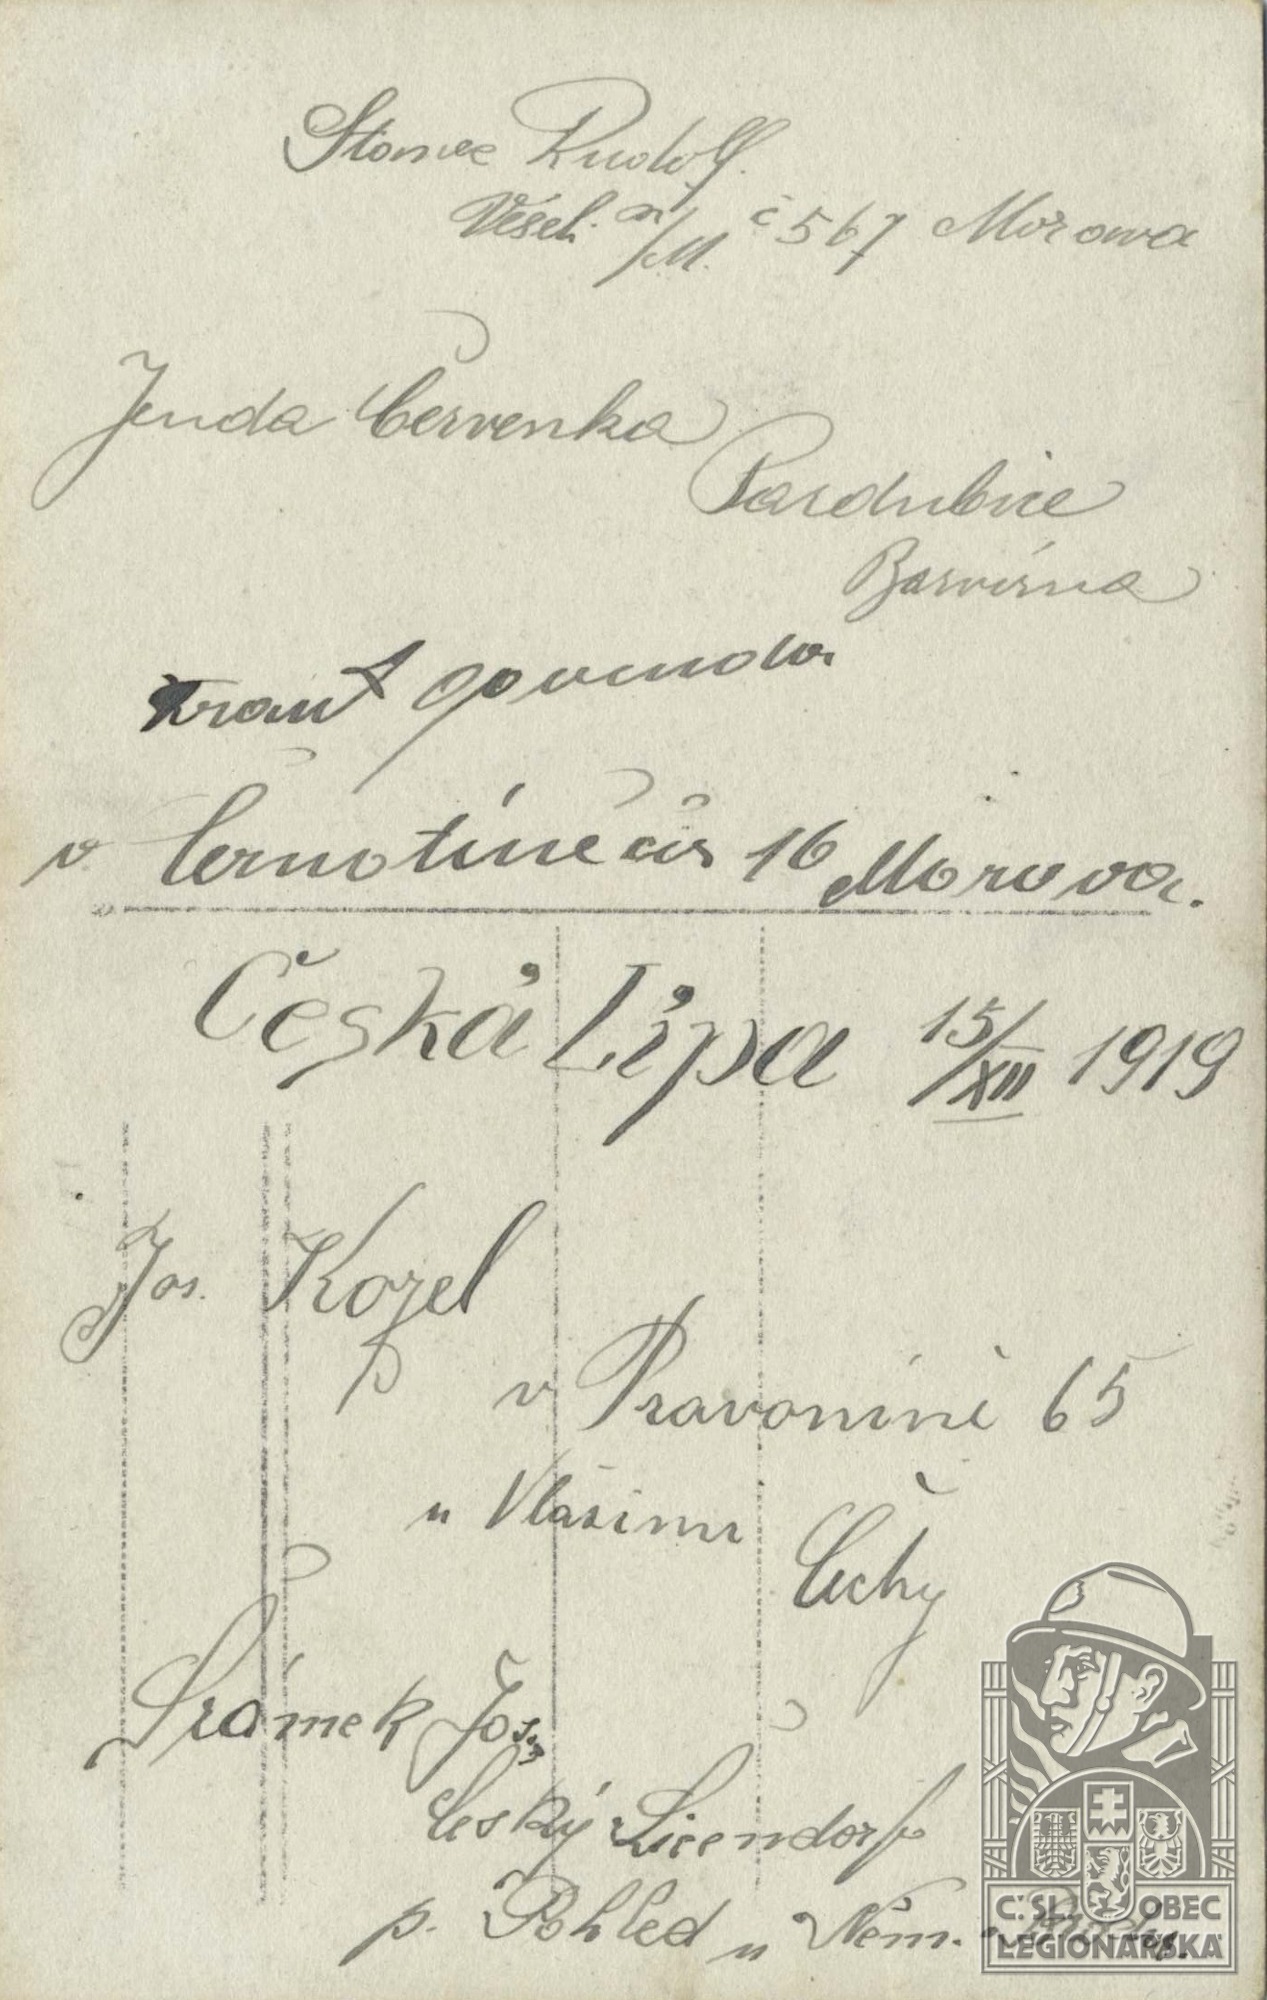 Stanec Rudolf.
Vesel. n/M. č 567 Morava
Jenda Červenka
Pardubice
Barvírna
Frant
v Černotíně čís 16 Morava.
Česká Lípa 15/XII 1919
Jos. Kozel
v Pravoníně 65
u Vlašimi
Čechy
Šrámek Jos.
Český Šicendorf
p. Pohled u Něm. Brodu.
Č:SL: OBEC
LEGIONÁŘSKÁ